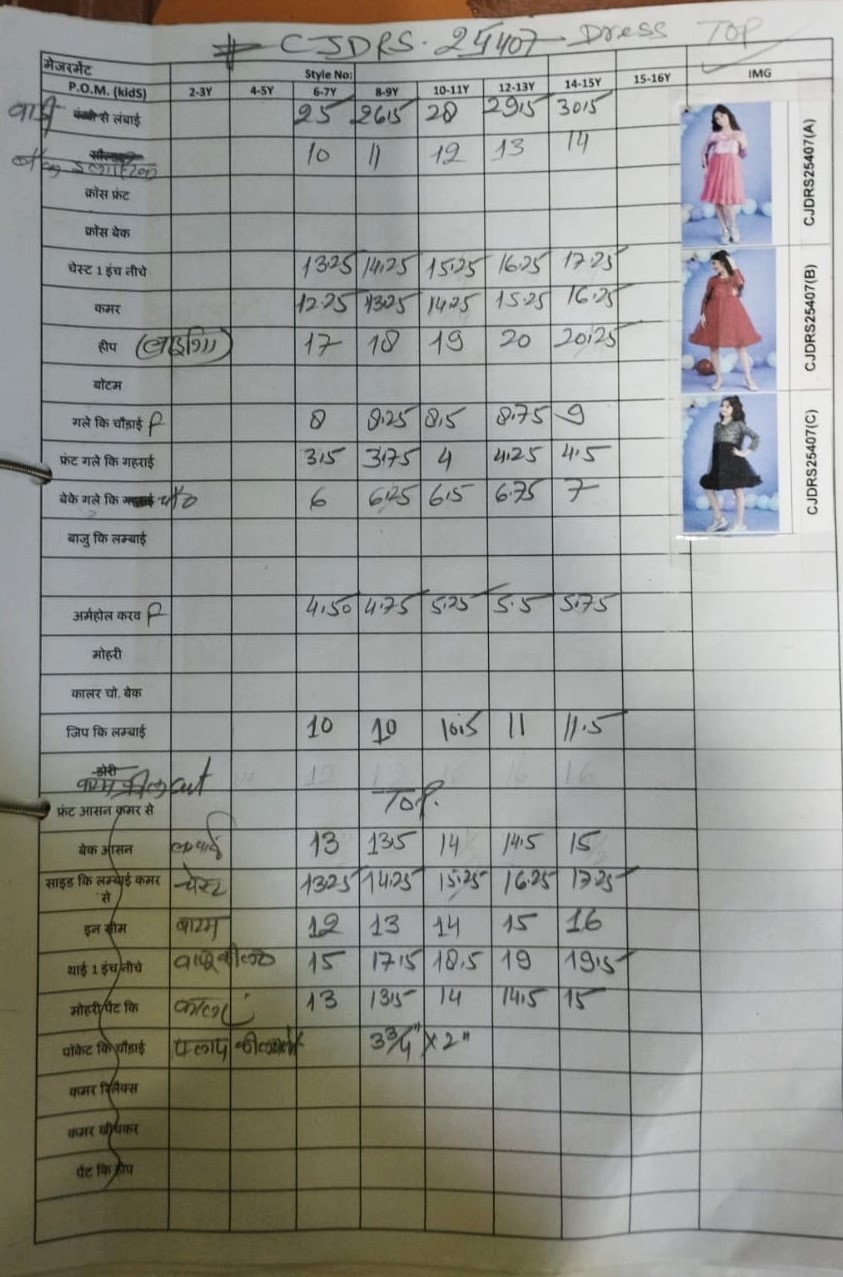 # CJDRS. 25407 Dress TOP
मेजरमेंट Style No: IMG
P.O.M. (kidS) 2-3Y 4-5Y 6-7Y 8-9Y 10-11Y 12-13Y 14-15Y 15-16Y
से लंबाई 25 26.5 28 29.5 30.5
10 11 12 13 14
क्रॉस फ्रंट
क्रॉस बेक
चेस्ट 1 इंच नीचे 13.25 14.25 15.25 16.25 17.25
कमर 12.25 13.25 14.25 15.25 16.25
हीप 17 18 19 20 20.25
बॉटम
गले कि चौड़ाई F 8 8.25 8.5 8.75 9
फ्रंट गले कि गहराई 3.5 3.75 4 4.25 4.5
बेके गले कि 6 6.25 6.5 6.75 7
बाजु कि लम्बाई
अर्महोल करव F 4.50 4.75 5.25 5.5 5.75
मोहरी
कालर चो. बेक
जिप कि लम्बाई 10 10 10.5 11 11.5
डोरी cut
फ्रंट आसन कमर से TOP.
बेक आसन 13 13.5 14 14.5 15
साइड कि लम्बाई कमर से चेस्ट 13.25 14.25 15.25 16.25 17.25
इन सीम 12 13 14 15 16
थाई 1 इंच नीचे 15 17.5 18.5 19 19.5
मोहरी पेंट कि 13 13.5 14 14.5 15
पॉकेट कि चौड़ाई 3¾" X 2"
कमर रिलेक्स
कमर खीचकर
पेंट कि हीप
CJDRS25407(A)
CJDRS25407(B)
CJDRS25407(C)